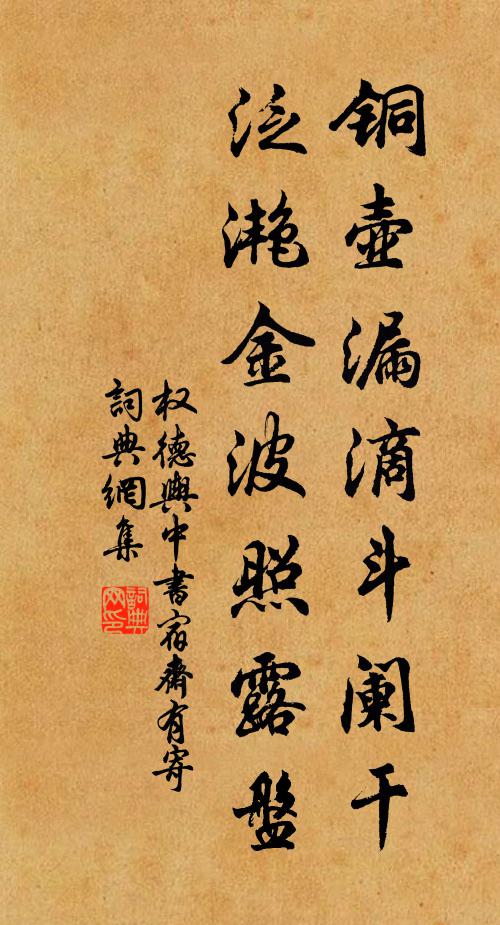 铜壶漏滴斗阑干
泛滟金波照露盘
权德舆中书宿斋有寄
词典網集
詞典网印